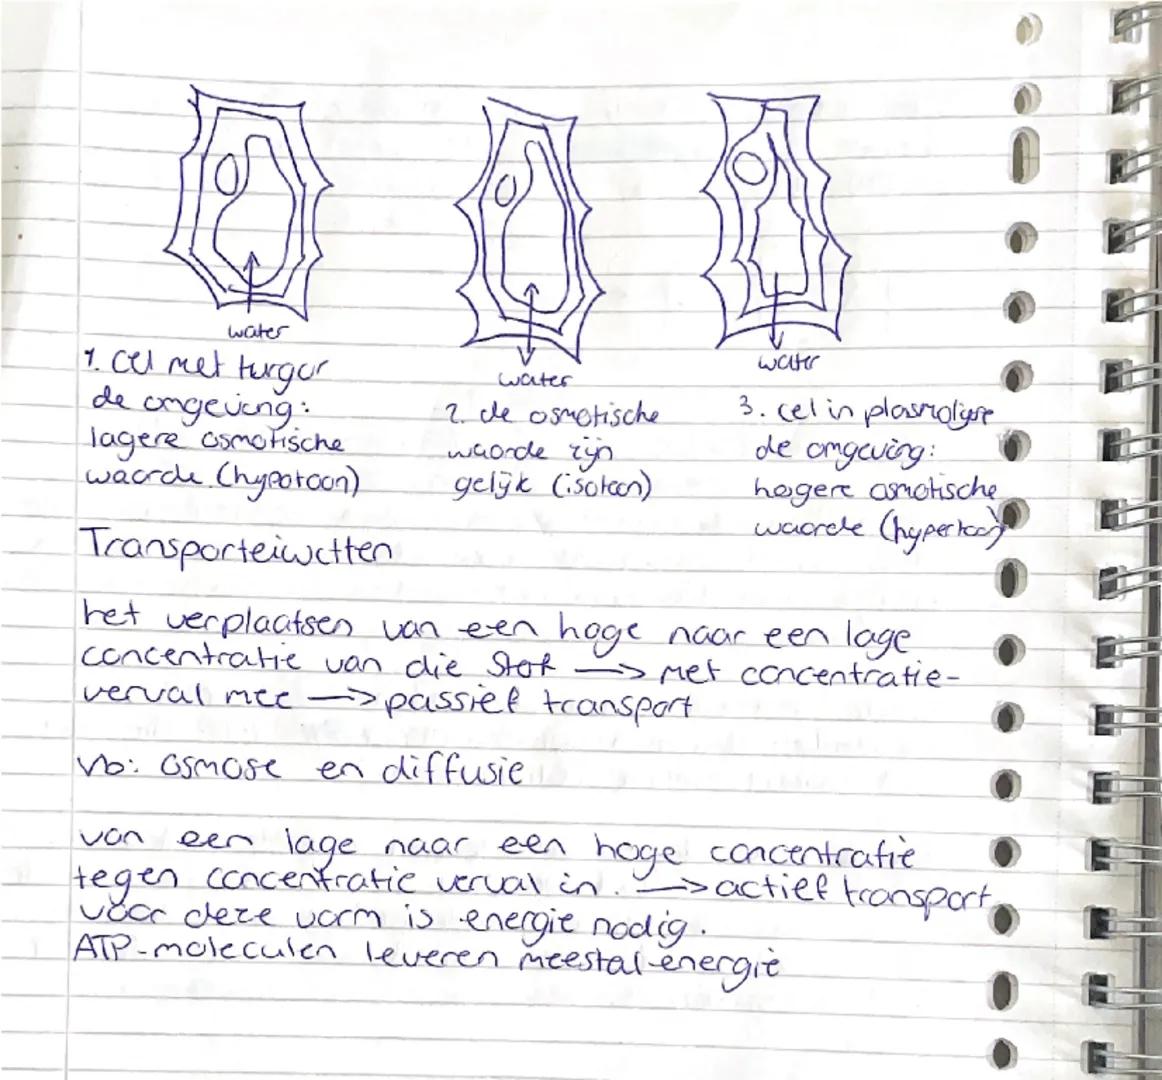 water
1. cel met turgor
de omgeving:
lagere osmotische
waarde (hypotoon)
water
2. de osmotische
waarde zijn
gelijk (isotoon)
water
3. cel in plasmolyse
de omgeving:
hogere osmotische
waarde (hypertoon)
Transporteiwitten
het verplaatsen van een hoge naar een lage
concentratie van die stof → met concentratie-
verval mee → passief transport
Vb: osmose en diffusie
van een lage naar een hoge concentratie
tegen concentratie verval in. → actief transport
voor deze vorm is energie nodig.
ATP-moleculen leveren meestal energie